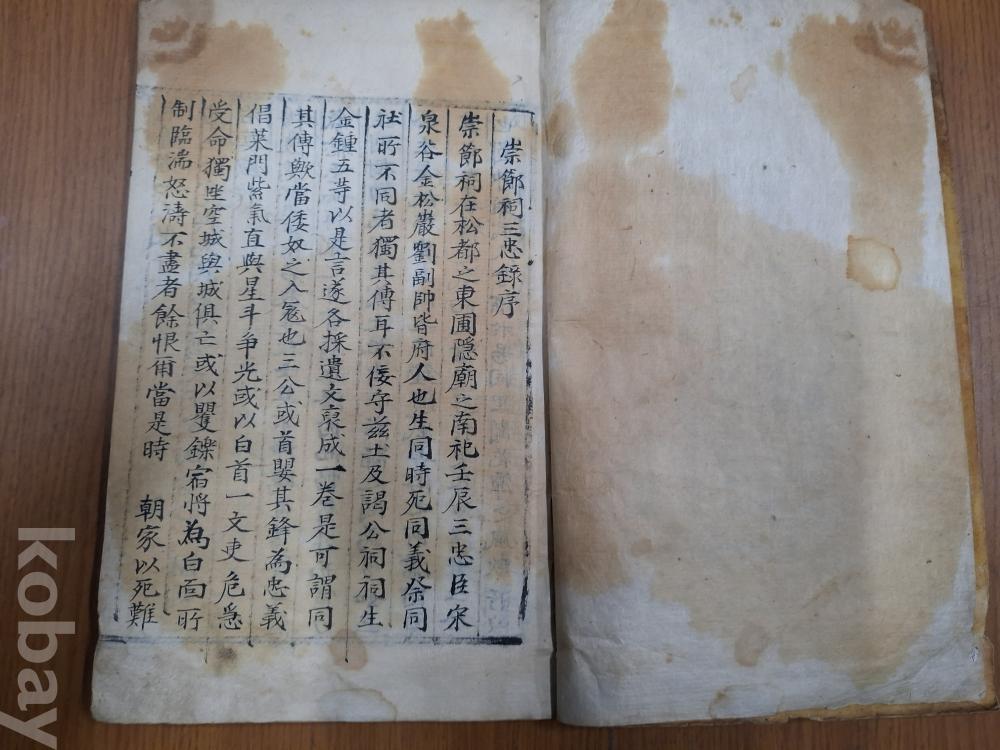 崇節祠三忠錄序
崇節祠在松都之東圃隐廟之南祀壬辰三忠臣宋
泉谷金松巖劉副帥皆府人也生同時死同義祭同
社所不同者獨其傳耳不佞守玆土及謁公祠祠生
金鍾五等以是言遂各採遺文裒成一卷是可謂同
其傳歟當倭奴之入冦也三公或首嬰其鋒為忠義
倡萊門紫氣直與星斗爭光或以白首一文吏危急
受命獨坐空城與城俱亡或以矍鑠宿将為白面所
制臨湍怒濤不盡者餘恨爾當是時 朝家以死難
kobay